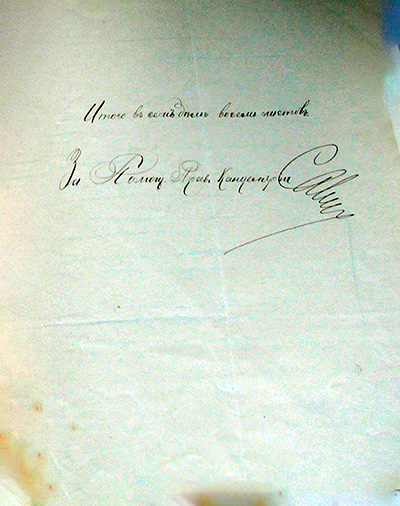 Итого въ семь дѣлѣ восемь листовъ.
За Помощ. Прав. Канцеляріи